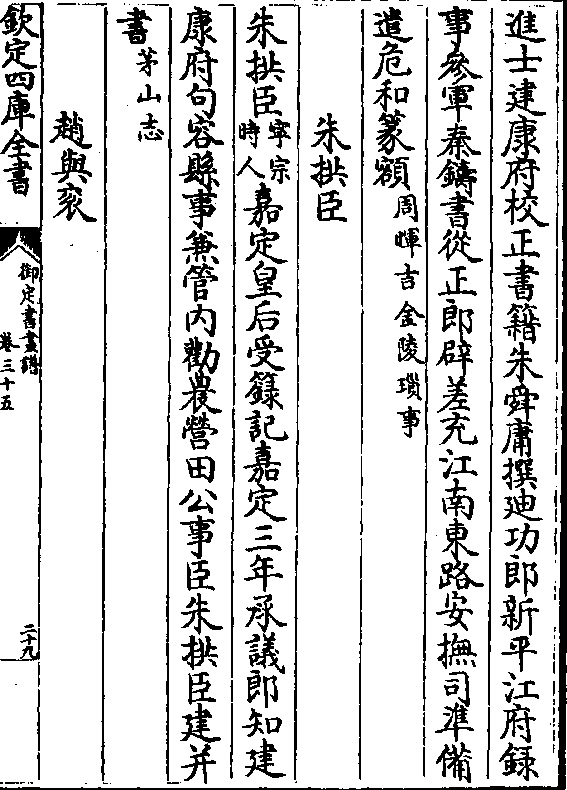 進士建康府校正書籍朱舜庸撰廸功郎新平江府録
事參軍秦鑄書從正郎辟差充江南東路安撫司準備
遣危和篆額周暉吉金陵瑣事
朱拱臣
朱拱臣寜宗時人嘉定皇后受籙記嘉定三年承議郎知建
康府句容縣事兼管内勸農營田公事臣朱拱臣建并
書茅山志
趙與𥙿
欽定四庫全書
御定書畫譜
卷三十五
二十九